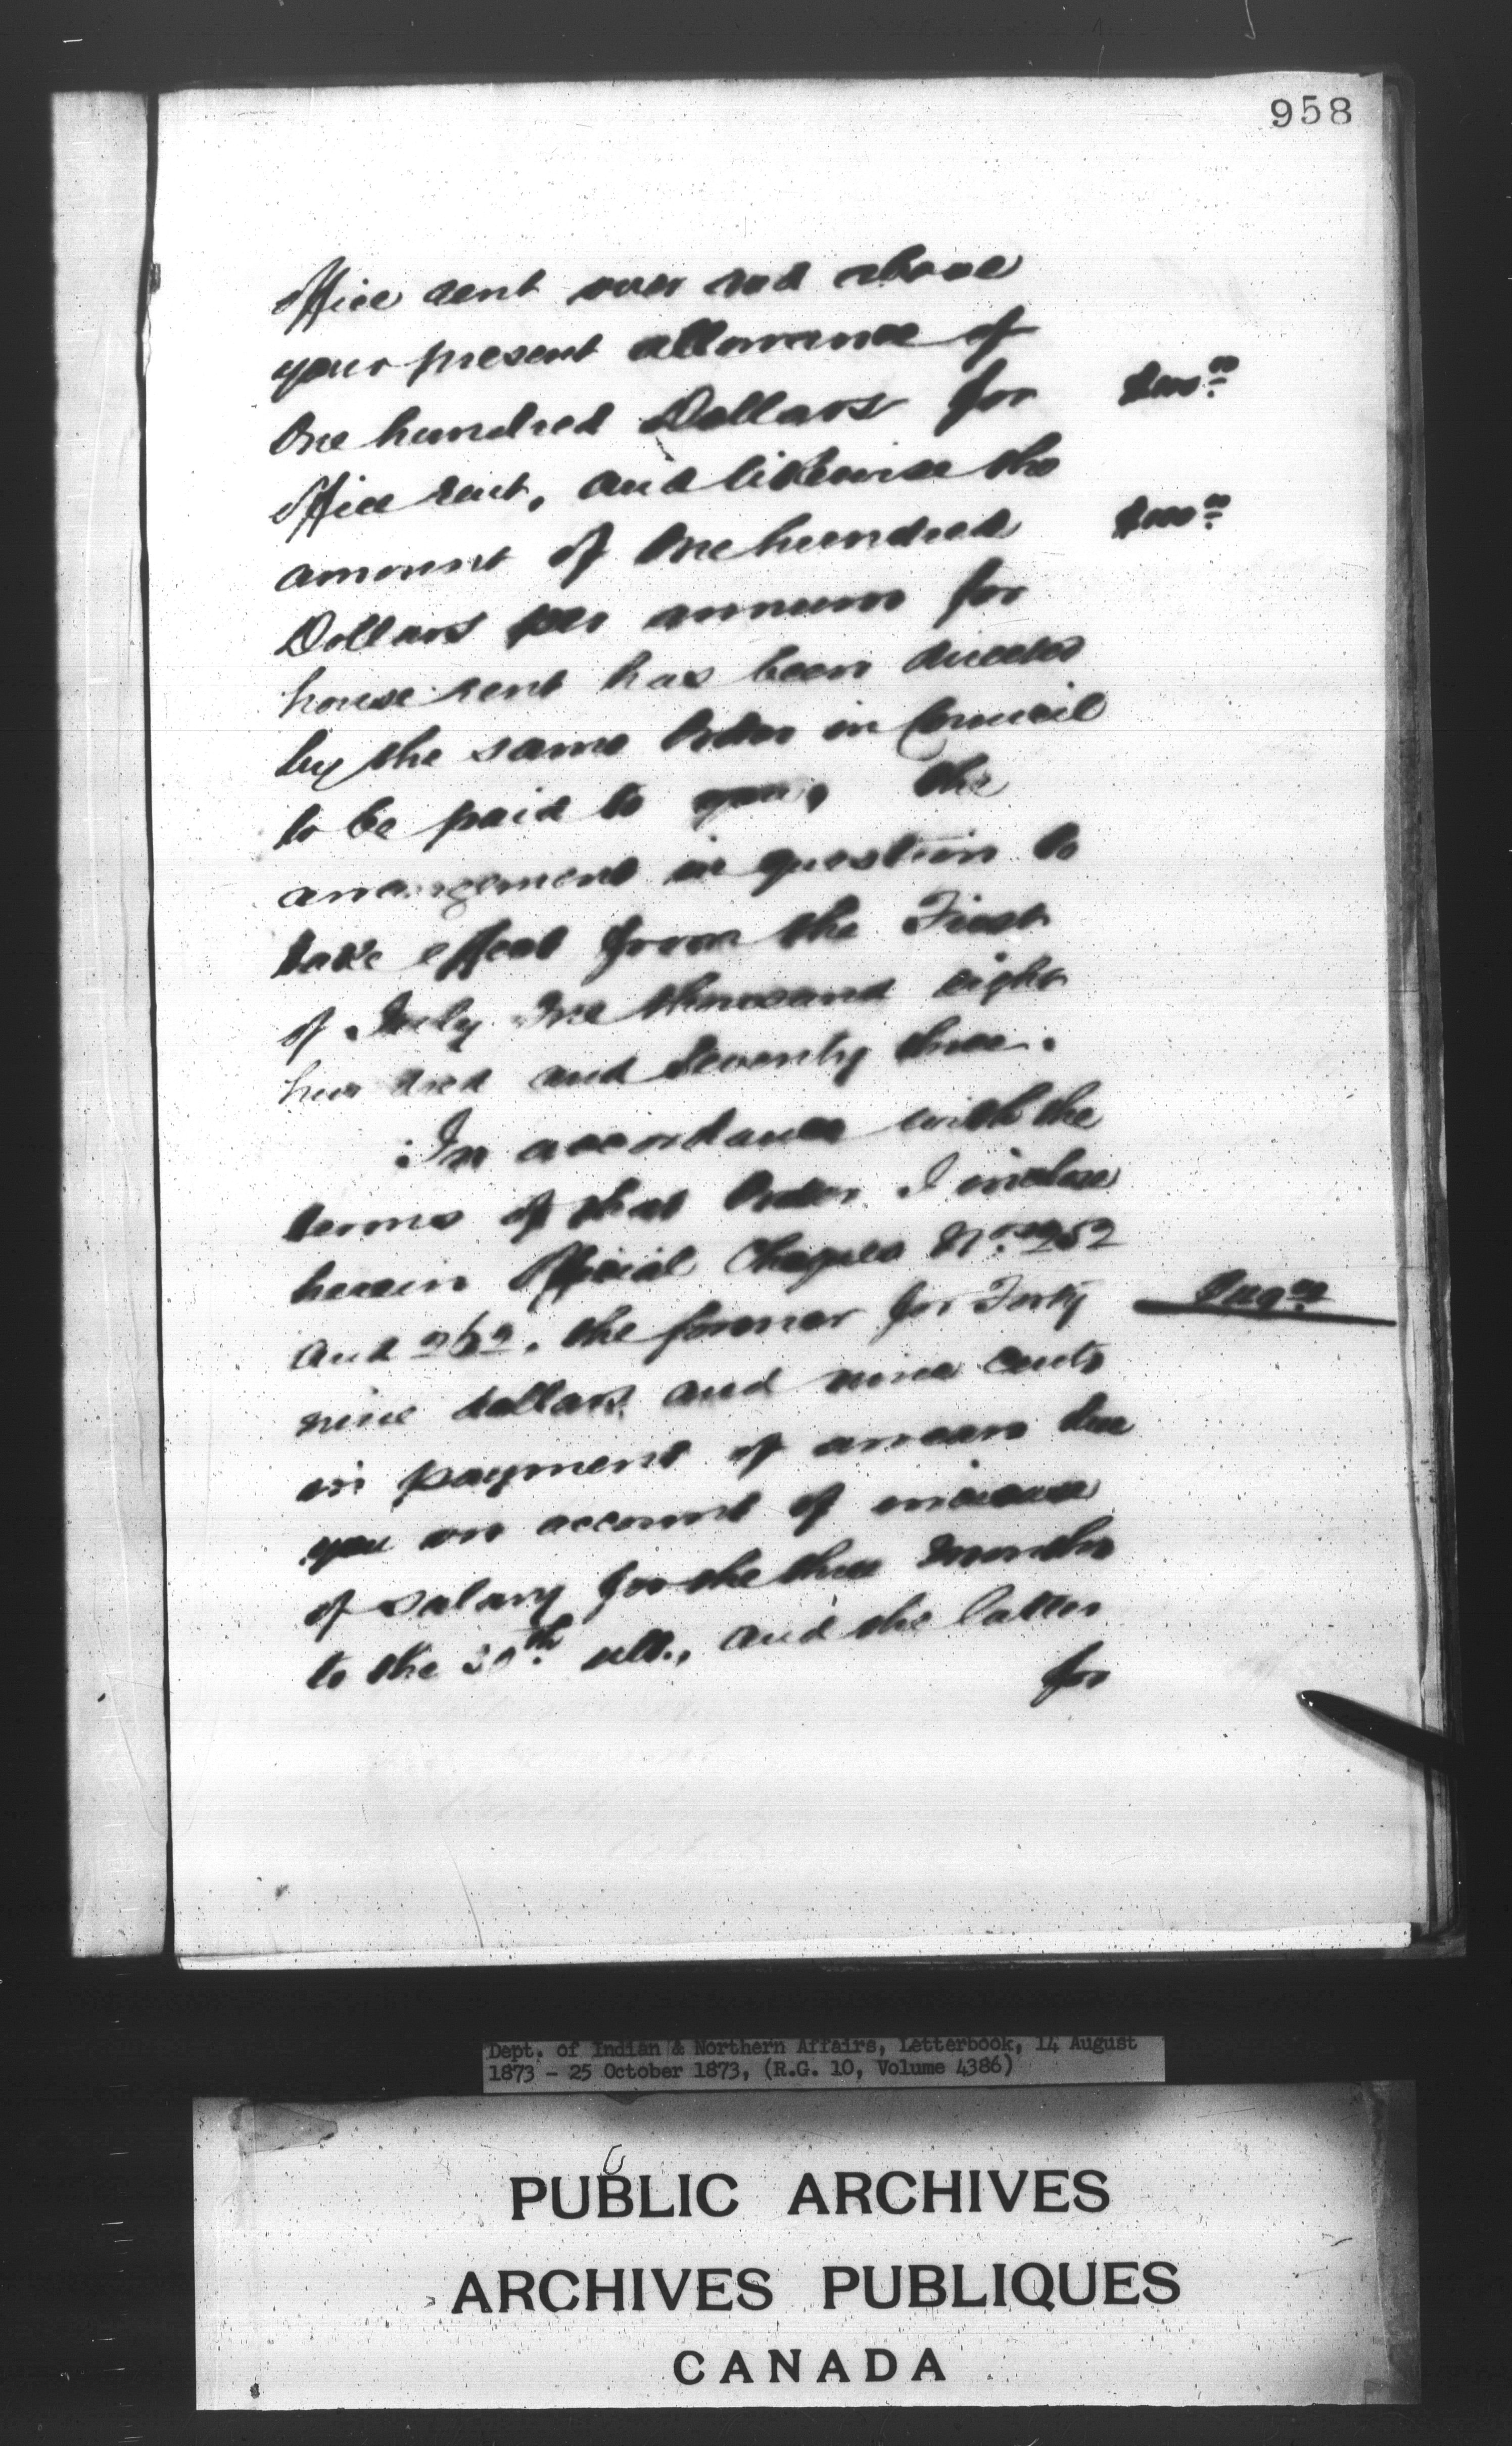 958
office rent over and above
your present allowance of
One hundred Dollars for
$100.00
office rent, and likewise the
amount of One hundred
$100.00
Dollars per annum for
house rent has been directed
by the same Order in Council
to be paid to you, the
arrangement in question to
take effect from the First
of July One thousand eight
hundred and Seventy three.
In accordance with the
terms of that Order I inclose
herein Official Cheques Nos 252
and the former for Forty
nine dollars and nine cents
in payment of arrears due
you on account of increase
of salary for the three months
to the 30th ult., and the latter
for
Dept. of Indian & Northern Affairs, Letterbook, 14 August
1873 - 25 October 1873, (R.G. 10, Volume 4386)
PUBLIC ARCHIVES
ARCHIVES PUBLIQUES
CANADA